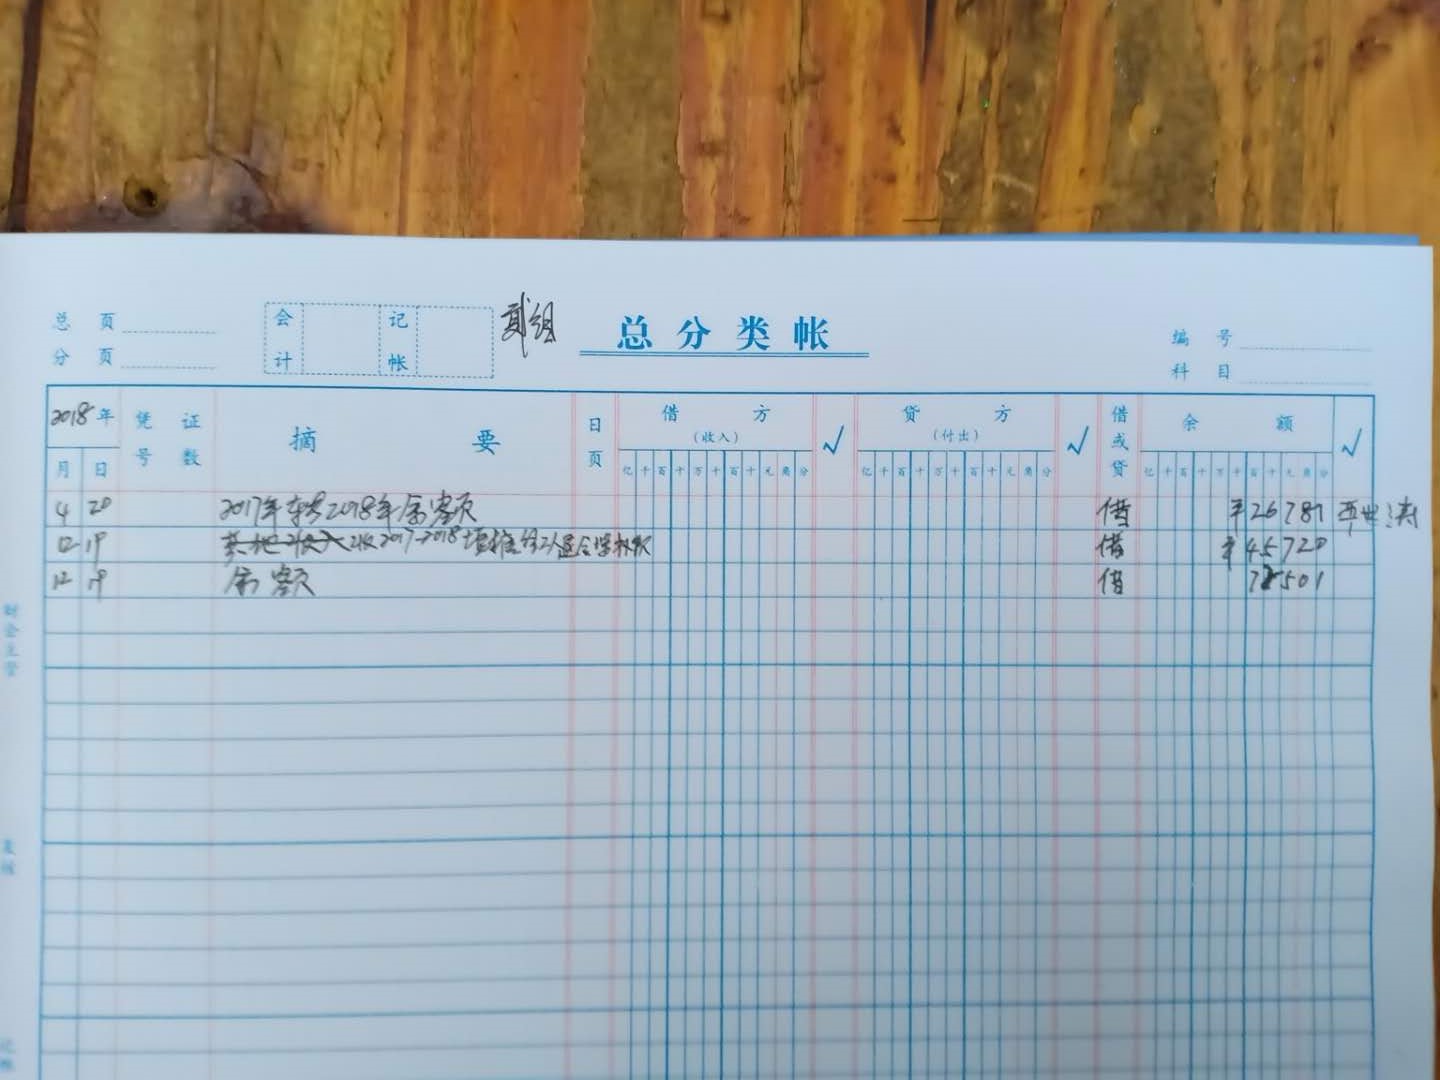 总 页
分 页
会计
记帐
贰组
总分类帐
编 号
科 目
2018年
月 日
凭证号数
摘要
日页
借方
(收入)
亿千百十万千百十元角分
√
贷方
(付出)
亿千百十万千百十元角分
√
借或贷
余额
亿千百十万千百十元角分
√
4 20 2017年 2018年余额 借 ¥26781
12 19 收2017-2018 借 ¥45720
12 19 余额 借 72501
财会主管
复核
记帐